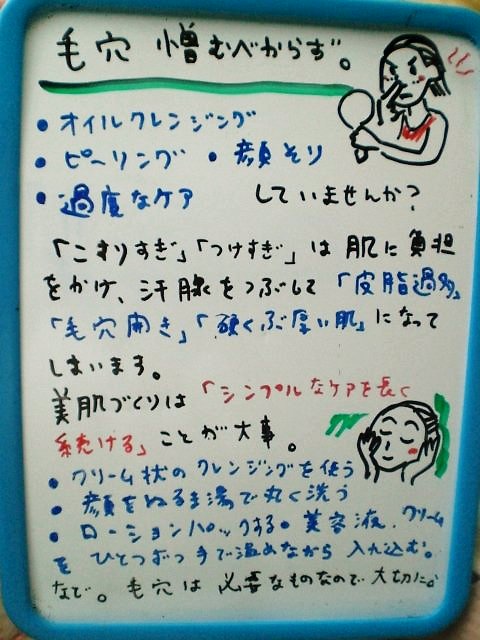 毛穴 憎むべからず。
• オイルクレンジング
• ピーリング • 顔そり
• 過度なケア していませんか?
「こすりすぎ」「つけすぎ」は肌に負担
をかけ、汗腺をつぶして「皮脂過多」
「毛穴開き」「硬くぶ厚い肌」になって
しまいます。
美肌づくりは「シンプルなケアを長く
続ける」ことが大事。
• クリーム状のクレンジングを使う
• 顔をぬるま湯で丸く洗う
• ローションパックする • 美容液、クリーム
を ひとつずつ手で温めながら 入れ込む。
など。毛穴は必要なものなので大切に。